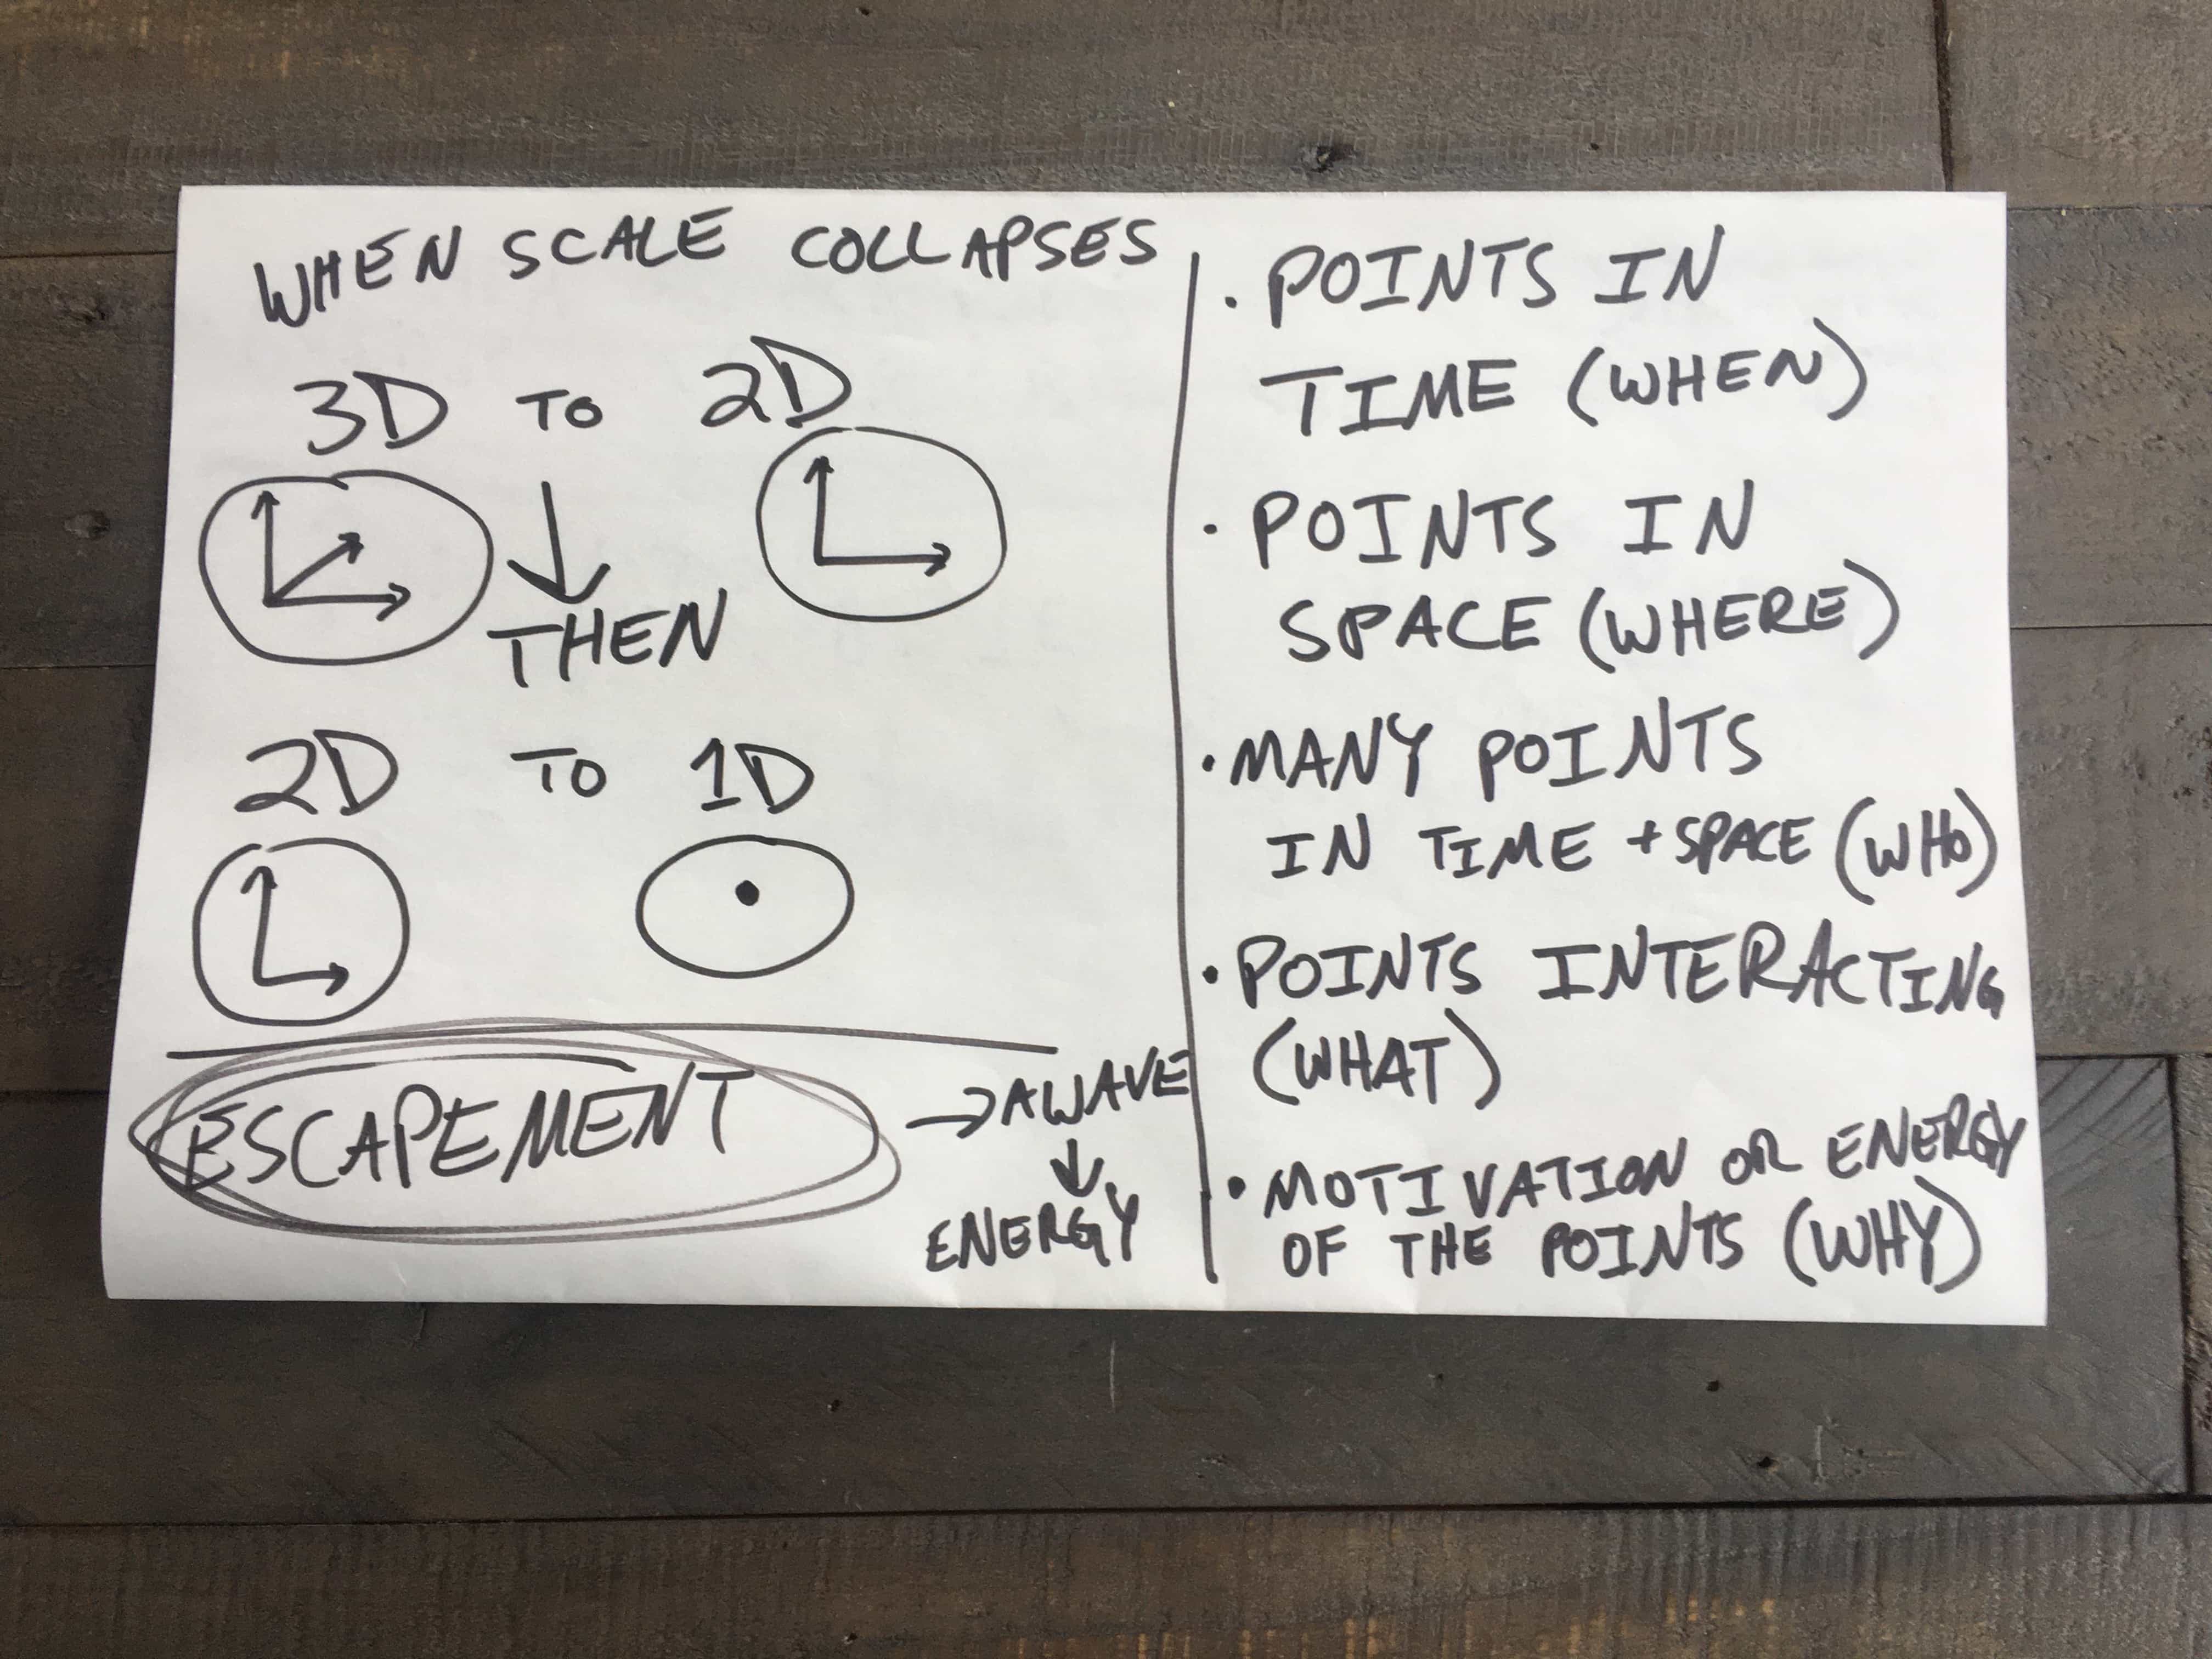 WHEN SCALE COLLAPSES
3D TO 2D
THEN
2D TO 1D
ESCAPEMENT
→ A WAVE
↓
ENERGY
· POINTS IN
TIME (WHEN)
· POINTS IN
SPACE (WHERE)
· MANY POINTS
IN TIME + SPACE (WHO)
· POINTS INTERACTING
(WHAT)
· MOTIVATION OR ENERGY
OF THE POINTS (WHY)